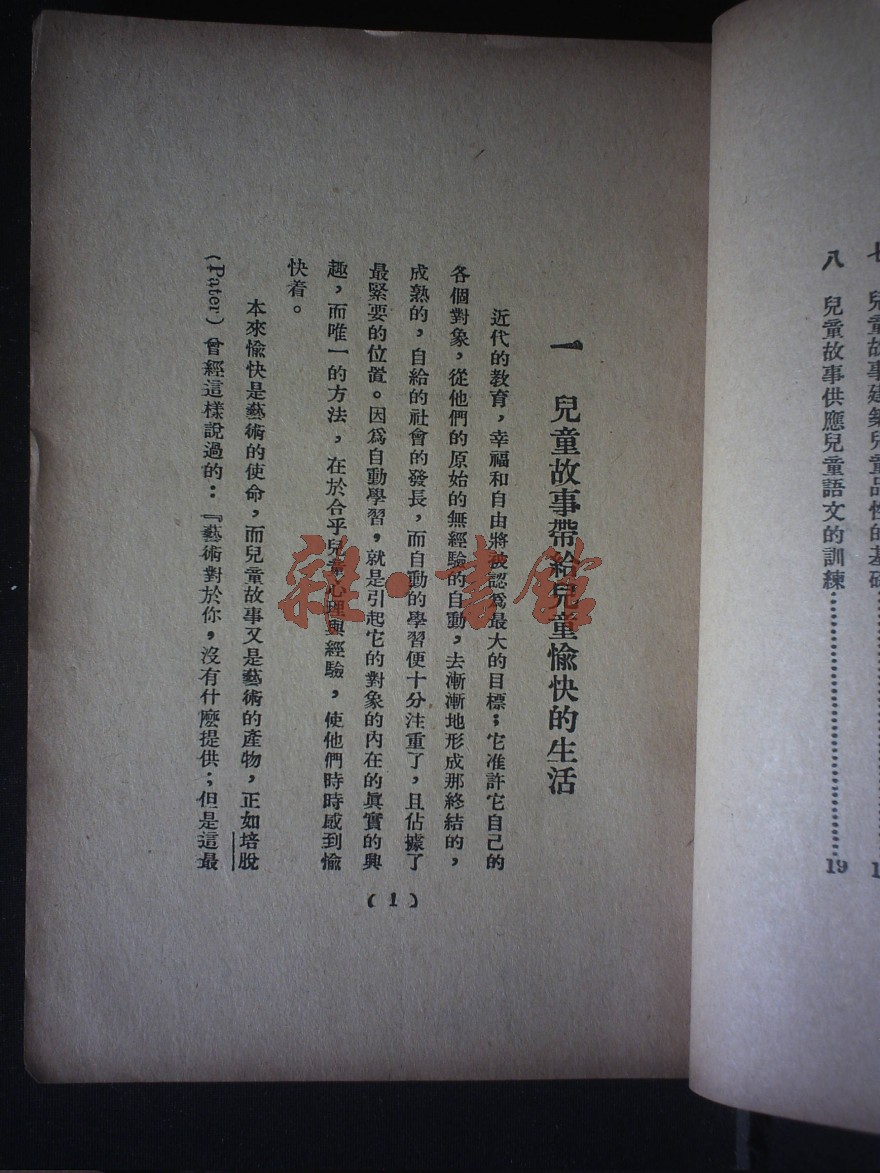 七 兒童故事建築兒童品性的基礎
八 兒童故事供應兒童語文的訓練……………………19
一 兒童故事帶給兒童愉快的生活
近代的教育，幸福和自由將被認爲最大的目標；它准許它自己的
各個對象，從他們的原始的無經驗的自動，去漸漸地形成那終結的，
成熟的，自給的社會的發長，而自動的學習便十分注重了，且佔據了
最緊要的位置。因爲自動學習，就是引起它的對象的內在的眞實的興
趣，而唯一的方法，在於合乎兒童心理與經驗，使他們時時感到愉
快着。
本來愉快是藝術的使命，而兒童故事又是藝術的產物，正如培脫
(Pater) 曾經這樣說過的：『藝術對於你，沒有什麼提供；但是這最
(1)
雜·書館